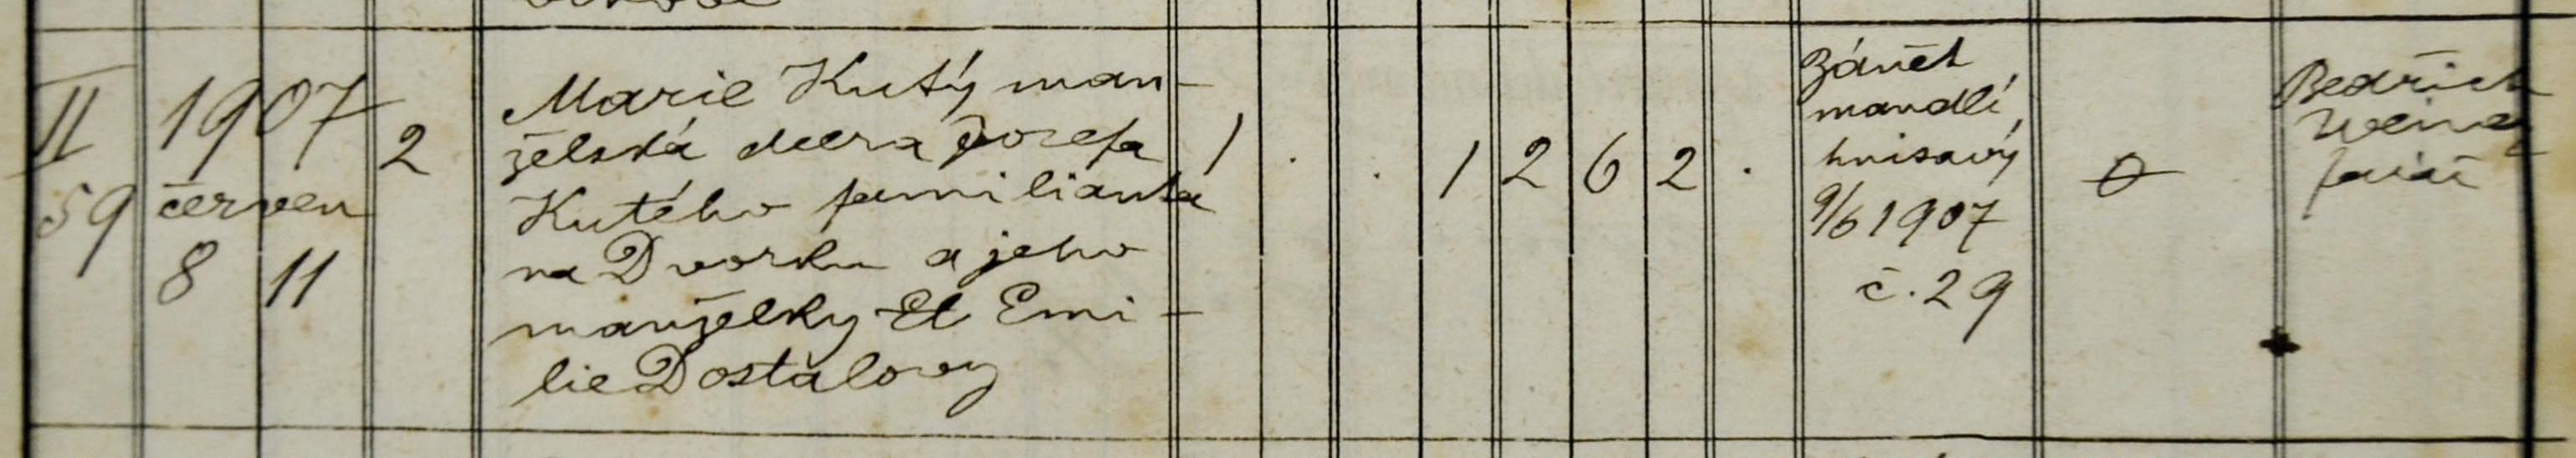 II
59
1907
červen
8 11
2
Marie Kutý man-
želská dcera Josefa
Kutého familianta
na Dvorku a jeho
manželky Et Emi-
lie Dostálovy
1 . . 1 2 6 2 .
Zánět
mandlí
hnisavý
9/6 1907
č. 29
0
Bedřich
farář